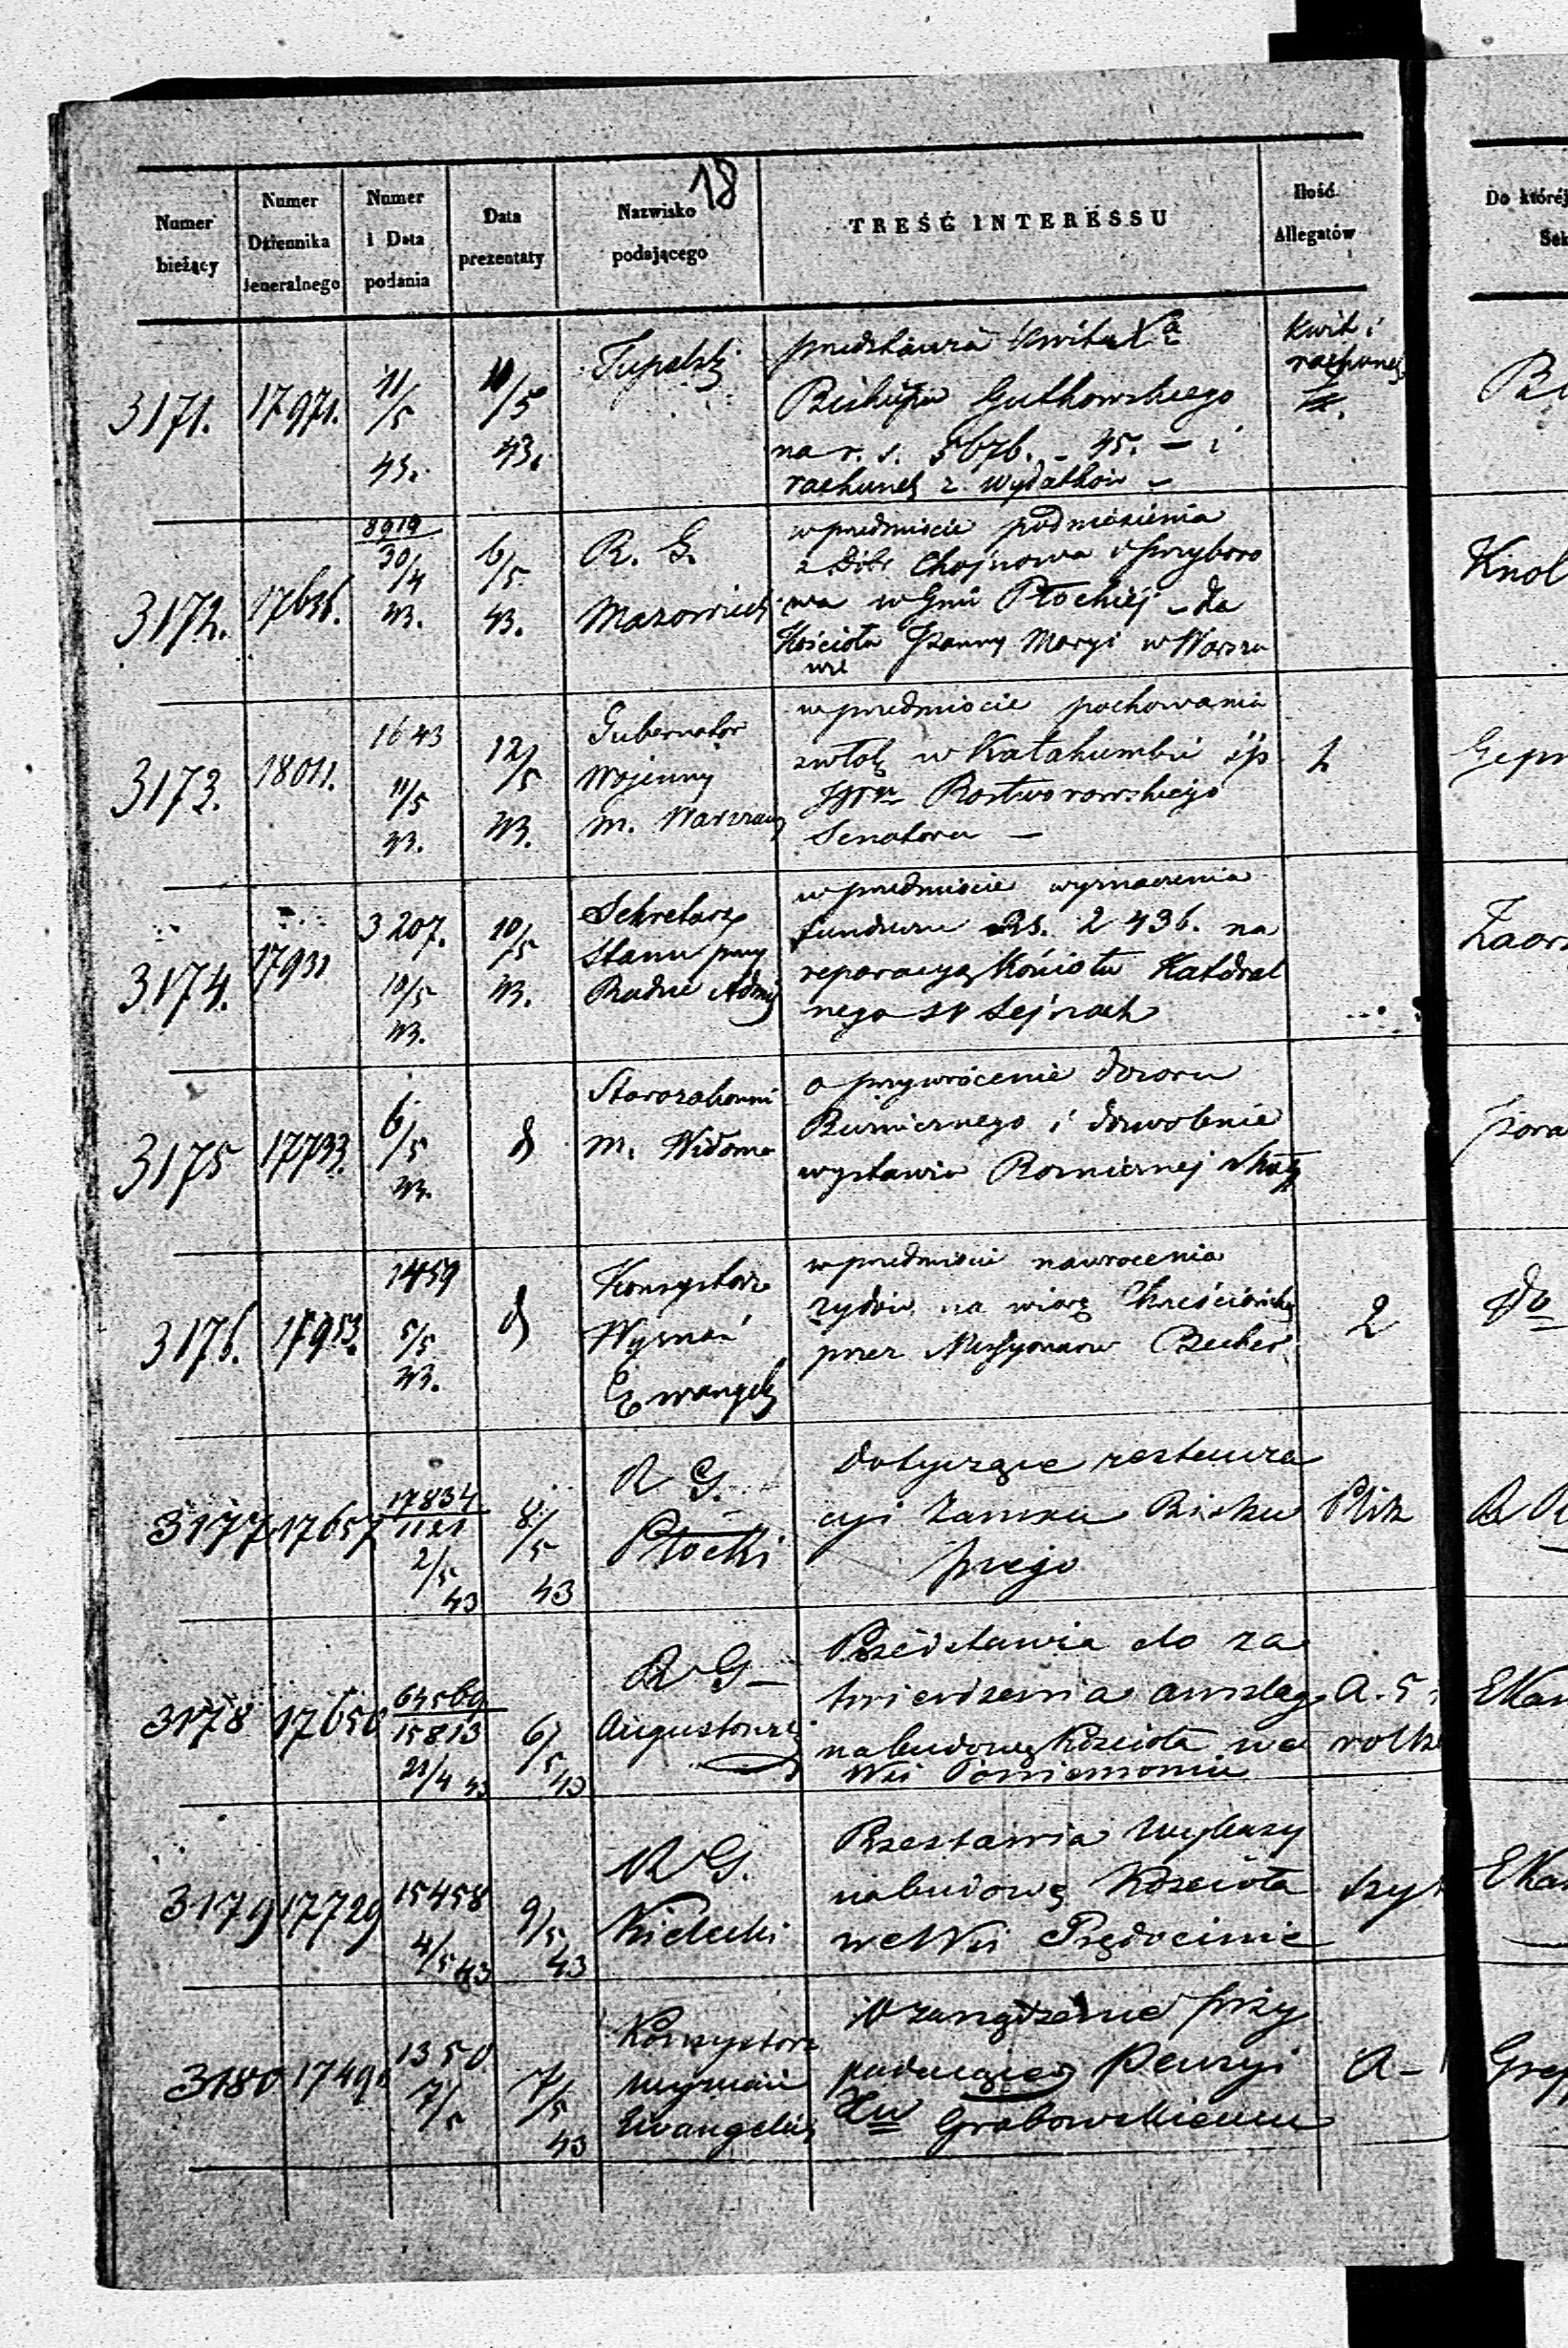 18
Numer bieżący
Numer Dziennika Jeneralnego
Numer i Data podania
Data prezentaty
Nazwisko podającego
TREŚĆ INTERESSU
Ilość Allegatów
Do której
3171. 17971. 11/5 43. 11/5 43.
przedstawia kwit Xa
Biskupa Gutkowskiego
na r. s. 5676. - 45. - i
rachunek z wydatków -
kwit i
rachunek
3172. 8919 30/4 43. 6/5 43.
R. G.
Mazowiecki
w przedmiocie podniesienia
z Dóbr Chojnowa i Przyboro
wa w Gnii Płockiej - dla
Kościoła Panny Maryi w Warsza
wie
3173. 18011. 1643 11/5 43. 12/5 43.
Gubernator
Wojenny
m. Warszawy
w przedmiocie pochowania
zwłok w Katakumbie śp
Rostworowskiego
Senatora -
1
3174. 17931 3207. 10/5 43. 10/5 43.
Sekretarz
Stanu przy
Radzie Admi
w przedmiocie wyznaczenia
funduszu Rs. 2436. na
reparacyą Kościoła Katedral
nego w Sejnach
3175 17733. 6/5 43. d
Starozakonni
m. Widoma
o przywrócenie dozoru
Bużniczego i dozwolenie
wystawia
3176. 17953. 1459 5/5 43. d
Konsystorz
Wyznań
Ewangelic
w przedmiocie nawrócenia
żydów na wiarę Chrześciańską
przez Missyonarza Becker
2
do
3177 17657 17834 1121 2/5 43 8/5 43
R G.
Płocki
Dotyczące restaura
cyi Zamku Bisku
piego
Plik
3178 17650 64569 15813 22/4 43 6/5 43
R G -
Augustowski
Przedstawia do za
twierdzenia anszlag
na budowę Kościoła we
Wsi Poniemoniu
A. 5
3179 17729 15458 4/5 43 9/5 43
R G.
Kielecki
Przestawia Wykazy
na budowę Kościoła
we Wsi Prędocinie
3180 1350 7/5 7/5 43
Konsystorz
Wyznań
Ewangelic
O zarządzenie przy
padającej Pensyi
Xu Grabowskiemu
A -